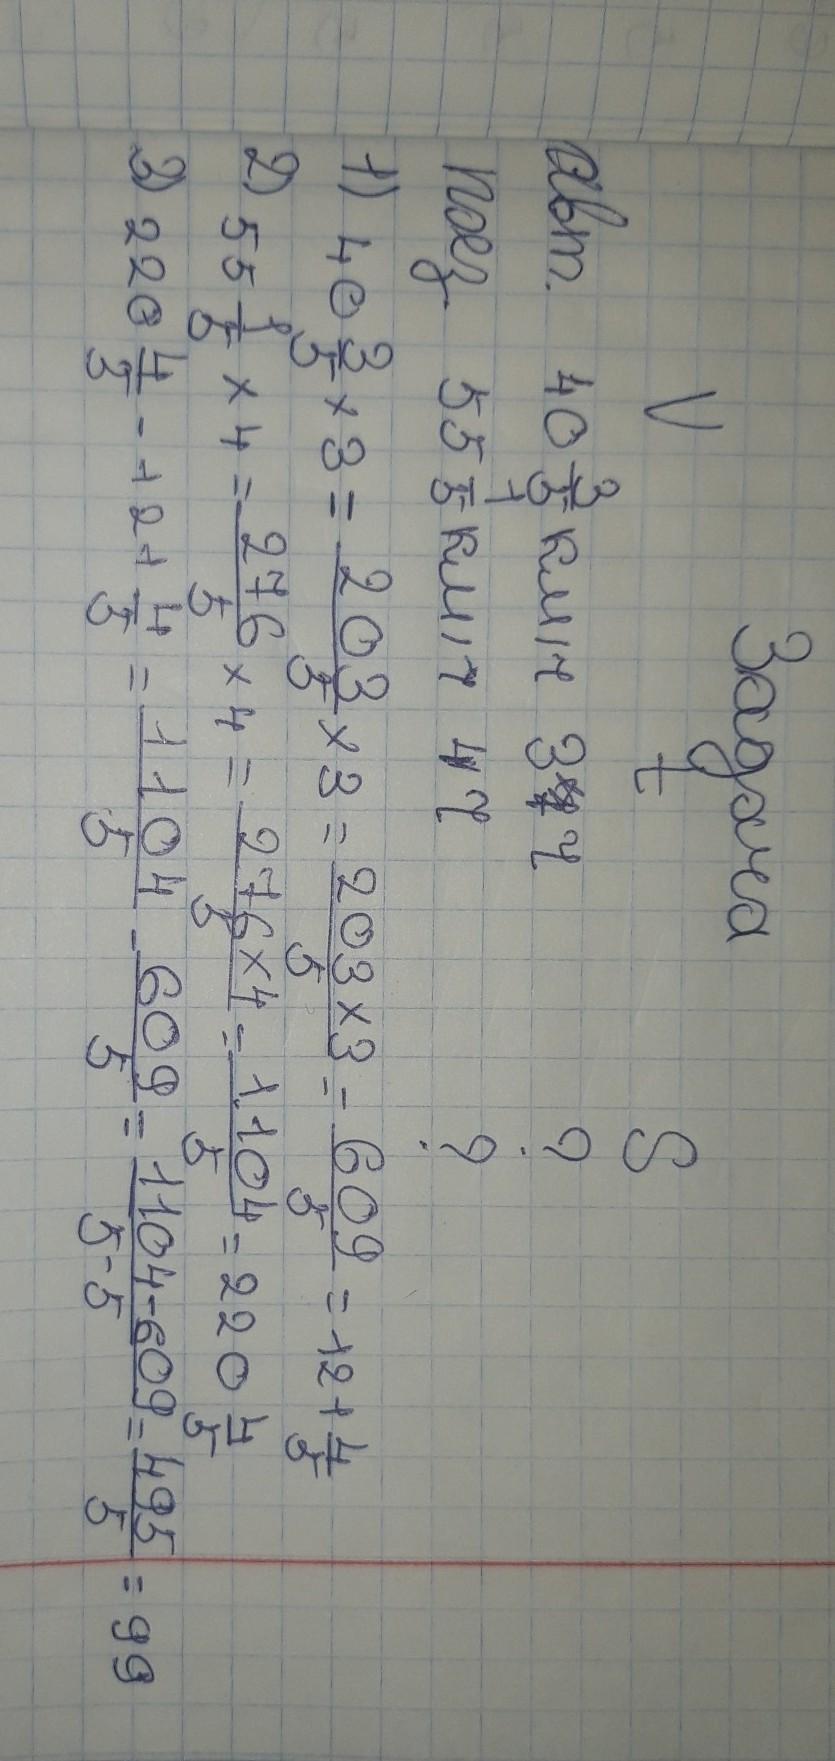 Задача
V t S
авт. 40 3/5 км/ч 3ч ?
поез. 55 1/5 км/ч 4ч ?
1) 40 3/5 × 3 = 203/5 × 3 = 203×3/5 = 609/5 = 121 4/5
2) 55 1/5 × 4 = 276/5 × 4 = 276×4/5 = 1104/5 = 220 4/5
3) 220 4/5 - 121 4/5 = 1104/5 - 609/5 = 1104-609/5-5 = 495/5 = 99